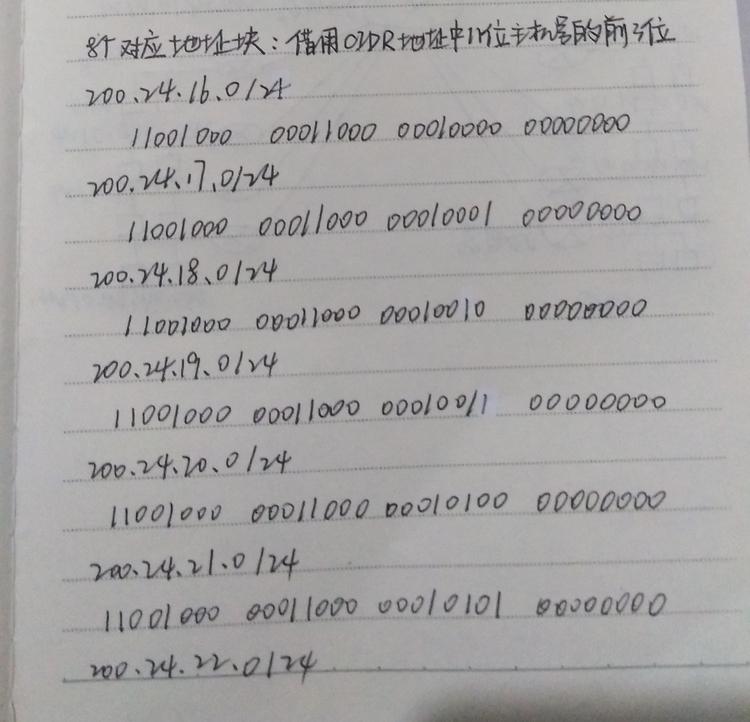 8个对应地址块：借用CIDR地址中11位主机号的前3位
200.24.16.0/24
11001000 00011000 00010000 00000000
200.24.17.0/24
11001000 00011000 00010001 00000000
200.24.18.0/24
11001000 00011000 00010010 00000000
200.24.19.0/24
11001000 00011000 00010011 00000000
200.24.20.0/24
11001000 00011000 00010100 00000000
200.24.21.0/24
11001000 00011000 00010101 00000000
200.24.22.0/24